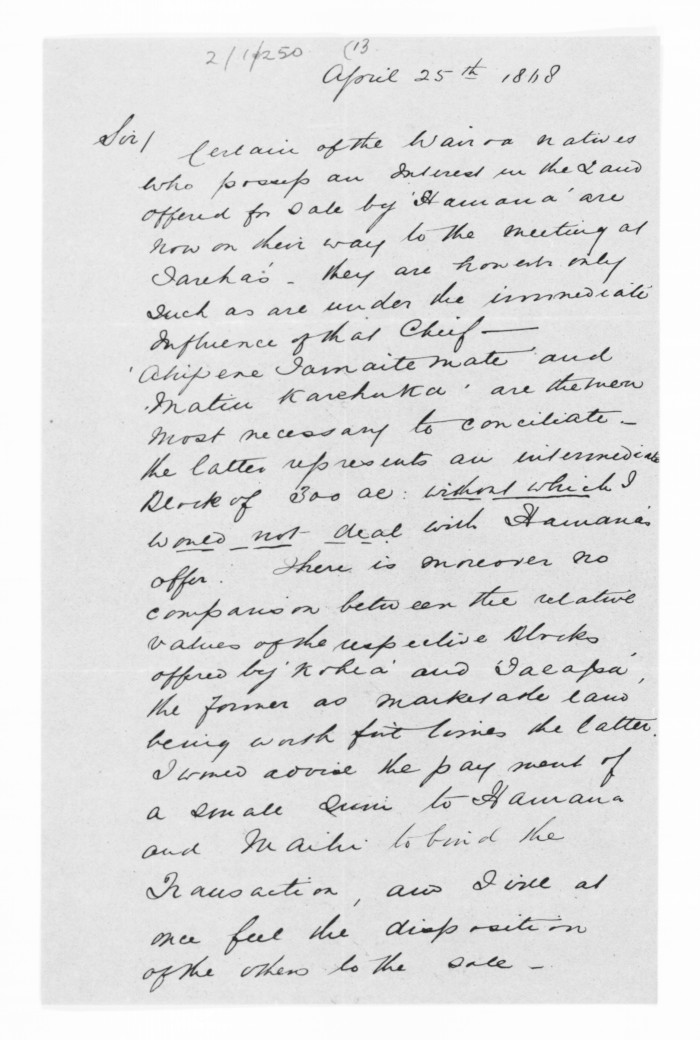 2/1/250 (13
April 25th 1868
Sir/
Certain of the Wairoa natives
who possess an Interest in the Land
offered for Sale by 'Hamana' are
now on their way to the meeting at
Tareha's - they are however only
Such as are under the immediate
Influence of that Chief —
'Ahipene Tamaitemate' and
'Matiu Karehuka' are the men
most necessary to conciliate -
the latter represents an intermediate
Block of 300 ac: without which I
would not deal with Hamana's
offer. There is moreover no
comparison between the relative
values of the respective Blocks
offered by 'Kohia' and
the former as marketable land
being worth times the latter.
I would advise the payment of
a small Sum to Hamana
and Maihi to bind the
Transaction, and I will at
once feel the disposition
of the others to the sale -